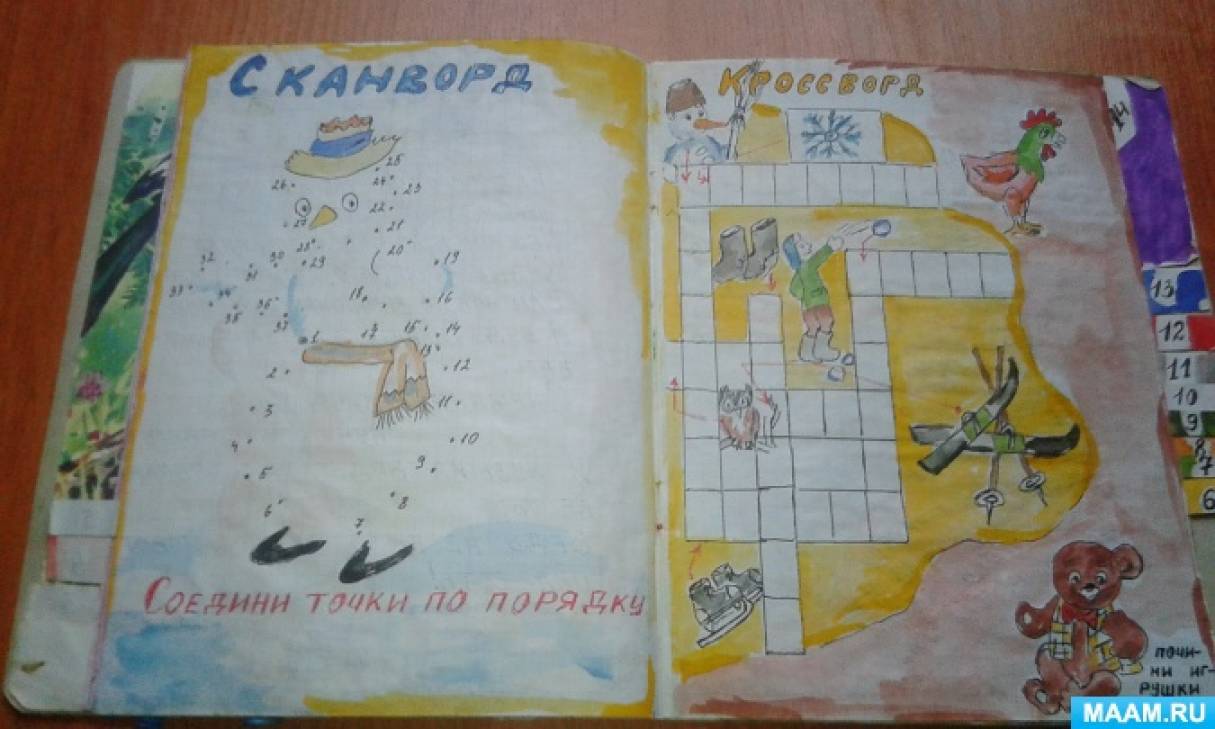 Сканворд
25
24
26
23
22
27
21
28
20
32
30
29
19
31
33
34
18
16
36
35
37
1
17
15
14
13
2
12
3
11
4
10
9
5
6
8
7
Соедини точки по порядку
Кроссворд
14
13
12
11
10
9
8
7
6
почи-
ни иг-
рушки
MAAM.RU